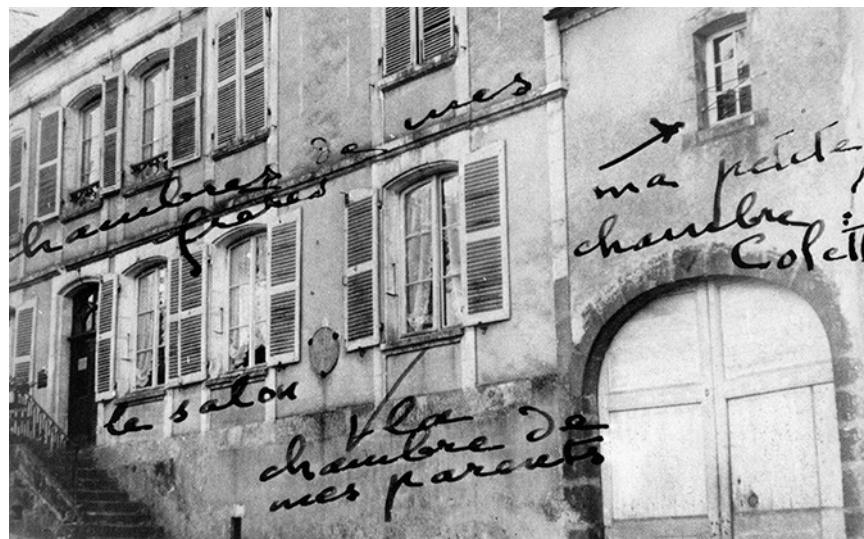 chambres de mes
frères
ma petite
chambre :
Colett
le salon
la
chambre de
mes parents